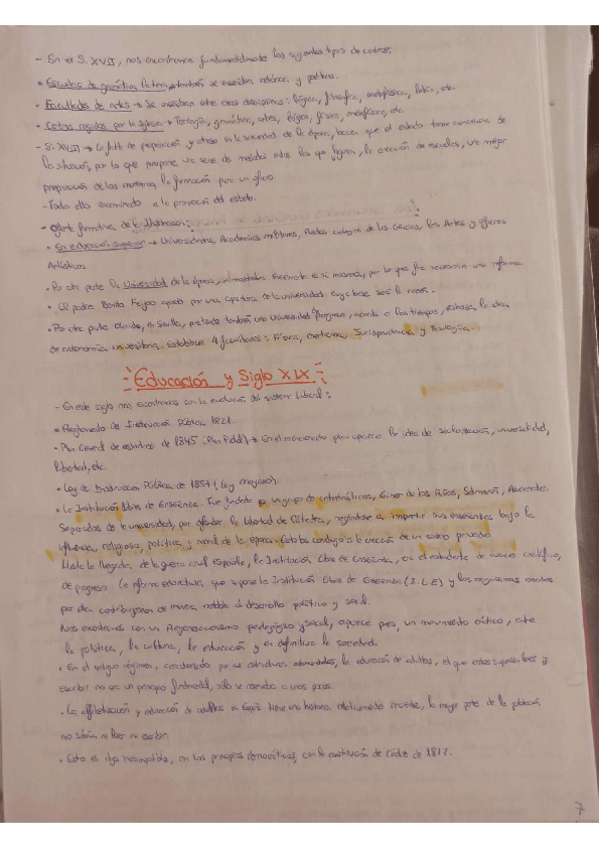 - En el S. XVII, nos encontramos fundamentalmente los siguientes tipos de centros:
• Escuelas de gramática latina, también se enseñaba retórica y poética.
• Facultades de artes → Se enseñaban entre otras disciplinas: lógica, filosofía, metafísica, física, etc.
• Centros regidos por la Iglesia → Teología, gramática, artes, lógica, física, metafísica, etc
- S. XVIII → La falta de preparación y atraso en la sociedad de la época, hacen que el estado tome conciencia de
la situación, por lo que propone una serie de medidas entre las que figuran, la creación de escuelas, una mejor
preparación de los maestros, la formación para un oficio.
- Todo ello encaminado a la promoción del estado.
- Oferta formativa de la Ilustración:
• En educación superior → Universidades, Academias militares, Reales colegios de las Ciencias, las Artes y oficios
Artísticos.
• Por otra parte la Universidad de la época, en sí misma, por lo que fue necesaria una reforma
• El padre Benito Feijoo apuesta por una apertura de la universidad cuya base será la razón.
• Por otra parte Olavide, en Sevilla, pretende también una Universidad progreso, acorde a los tiempos,
de autonomía universitaria. Establece 4 facultades: Física, medicina, Jurisprudencia y Teología.
Educación y Siglo XIX
- En este siglo nos encontramos con la evolución del sistema liberal:
• Reglamento de Instrucción Pública 1821.
• Plan General de estudios de 1845 (Plan Pidal) → En el mencionado plan aparece la idea de secularización, universalidad,
libertad, etc.
• Ley de Instrucción Pública de 1857 (Ley moyano).
• La Institución libre de Enseñanza. Fue fundada por un grupo de catedráticos, Giner de los Ríos, Salmerón, Azcárate.
Separados de la universidad, por defender la libertad de Cátedra, negándose a impartir sus enseñanzas bajo la
influencia, religiosa, política y moral de la época. Esto los condujo a la creación de un centro privado
Hasta la llegada, de la guerra civil Española, la Institución libre de Enseñanza, era el estandarte de avance científico,
de progreso. La reforma educativa que supone la Institución libre de Enseñanza (I.L.E) y los organismos creados
por ella contribuyeron de manera notable al desarrollo político y social.
Nos encontramos con un Regeneracionismo pedagógico y social, aparece pues, un movimiento crítico, ante
la política, la cultura, la educación y en definitiva la sociedad.
• En el antiguo régimen, caracterizado por sus estructuras, la educación de adultos, el que estos supiesen leer y
escribir no era un principio fundamental, sólo se reservaba a unos pocos.
- La alfabetización y educación de adultos en España tiene una historia relativamente reciente, la mayor parte de la población
no sabía ni leer ni escribir
• Esto es algo incompatible, con los principios democráticos, con la constitución de Cádiz de 1812.
7